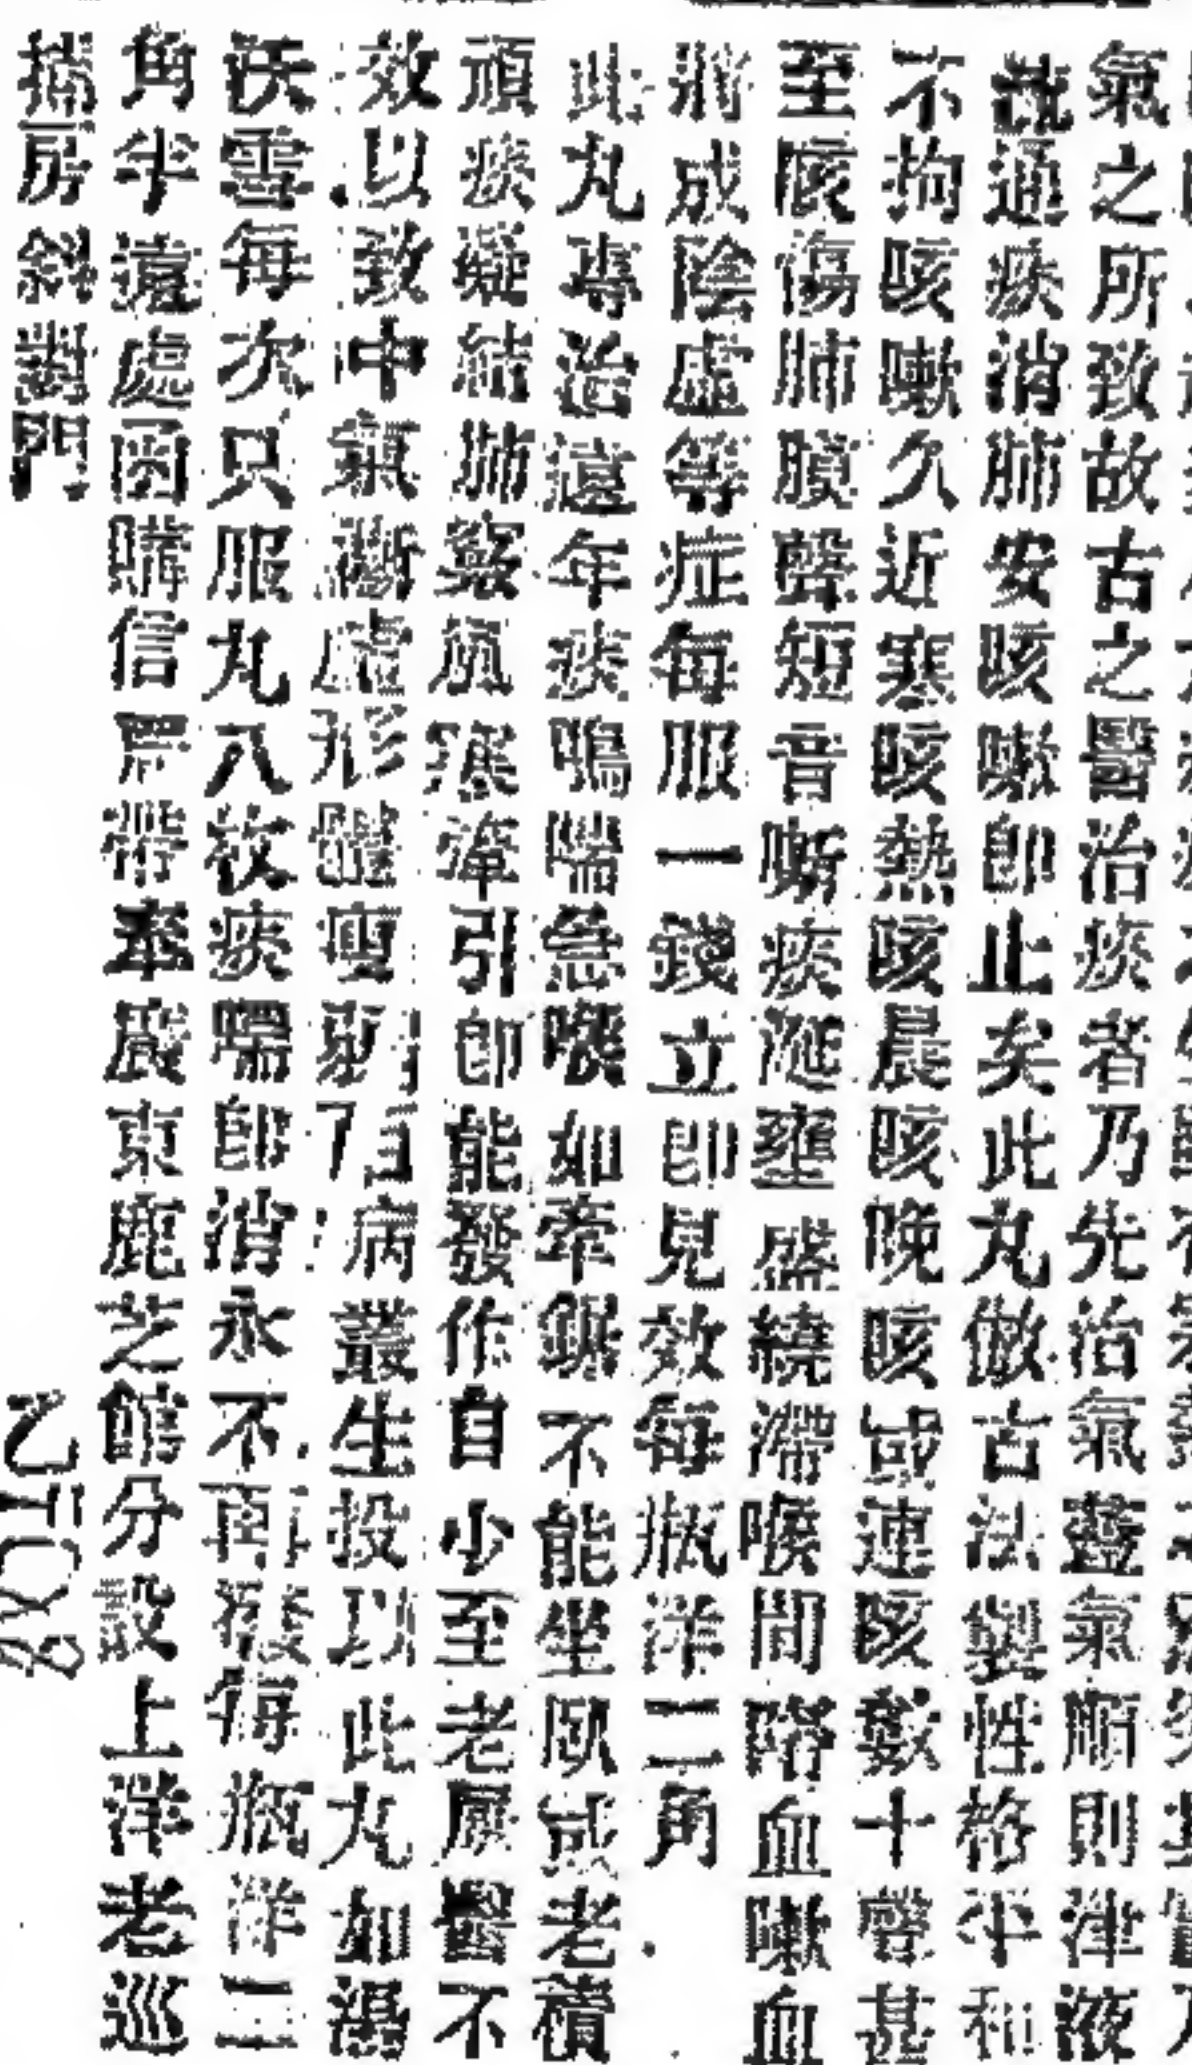 氣之所致故古之醫治痰者乃先治氣蓋氣順則津液
流通痰消肺安咳嗽即止矣此丸倣古法製性格平和
不拘咳嗽久近寒咳熱咳晨咳晚咳或連咳數十聲甚
至咳傷肺膜聲短音嘶痰涎壅盛繞滯喉間咯血嗽血
將成陰虛等症每服一錢立即見效每瓶洋二角
此丸專治遠年痰鳴喘急喉如牽鋸不能坐臥或老積
頑痰凝結肺竅風寒牽引即能發作自少至老屢醫不
效以致中氣漸虛形體瘦弱百病叢生投以此丸如湯
沃雪每次只服丸八枚痰喘即消永不再發每瓶洋二
角半遠處函購信局帶奉廠東鹿芝館分設上洋老巡
捕房斜對門
乙